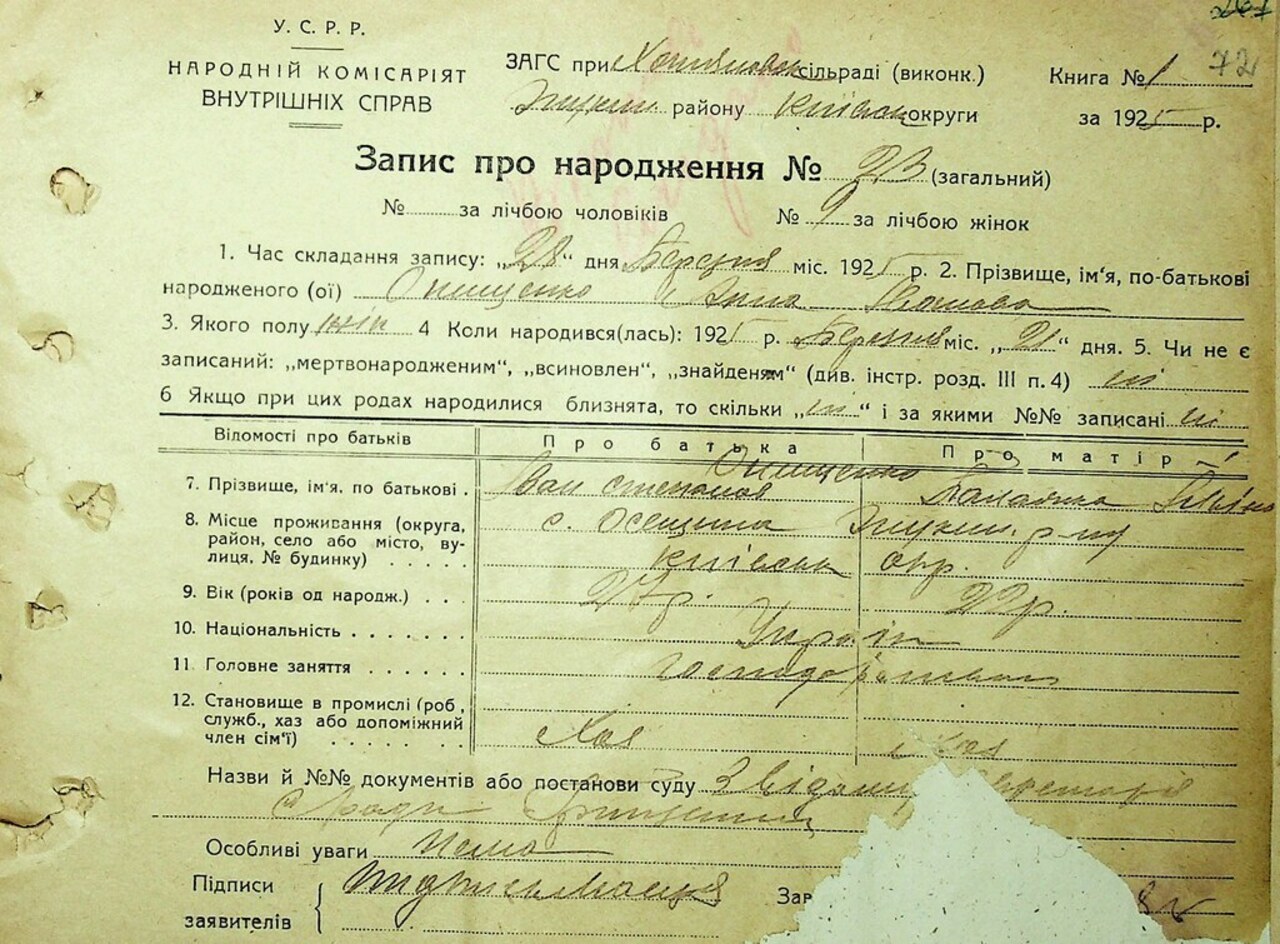 267
У.С.Р.Р.
НАРОДНІЙ КОМІСАРІЯТ
ВНУТРІШНІХ СПРАВ
ЗАГС при Хотянівськ сільраді (виконк.)
району Київськ округи
Книга № 1 72
за 1925 р.
Запис про народження № 23 (загальний)
№ за лічбою чоловіків № 9 за лічбою жінок
1. Час складання запису: „28“ дня Березня міс. 1925 р. 2. Прізвище, ім‘я, по-батькові
народженого (ої) Онищенко Анна Іванова
3. Якого полу жін 4 Коли народився(лась): 1925 р. Березня міс. „21“ дня. 5. Чи не є
записаний: „мертвонародженим“, „всиновлен“, „знайденям“ (див. інстр. розд. III п. 4) ні
6 Якщо при цих родах народилися близнята, то скільки „ні“ і за якими №№ записані ні
Відомості про батьків Про батька Про матір
Онищенко
7. Прізвище, ім‘я. по батькові . Іван Степанов
8. Місце проживання (округа, с. Осещина р-ну
район, село або місто, ву-
лиця, № будинку) . . . . . Київськ окр.
9. Вік (років од народж.) . . 27р. 22р.
10. Національність . . . . . . . Україн
11. Головне заняття . . . . . .
12. Становище в промислі (роб.,
служб., хаз або допоміжний
член сім‘ї) . . . . . . . Хаз Хаз
Назви й №№ документів або постанови суду З відома
Особливі уваги Нема
Підписи Зав
заявителів